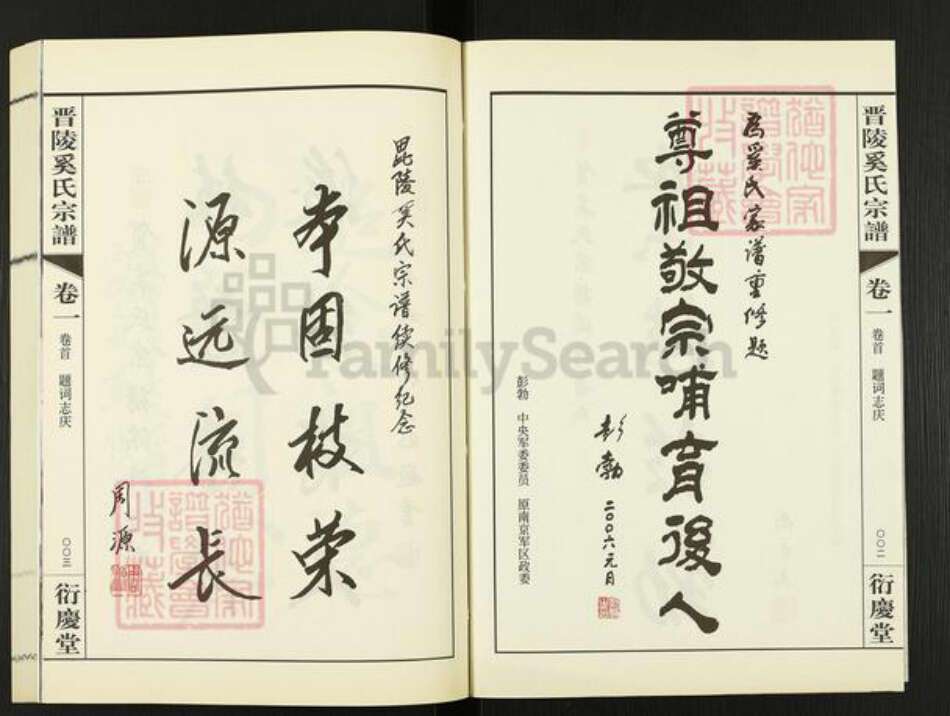 晋陵奚氏宗譜
卷一
卷首 题词志庆
〇〇二
衍慶堂
为奚氏家谱重修题
尊祖敬宗哺育後人
彭勃 二〇〇六元月
彭勃 中央军委委员 原南京军区政委
毘陵奚氏宗谱续修纪念
本固枝荣
源远流长
周源
晋陵奚氏宗譜
卷一
卷首 题词志庆
〇〇三
衍慶堂
FamilySearch